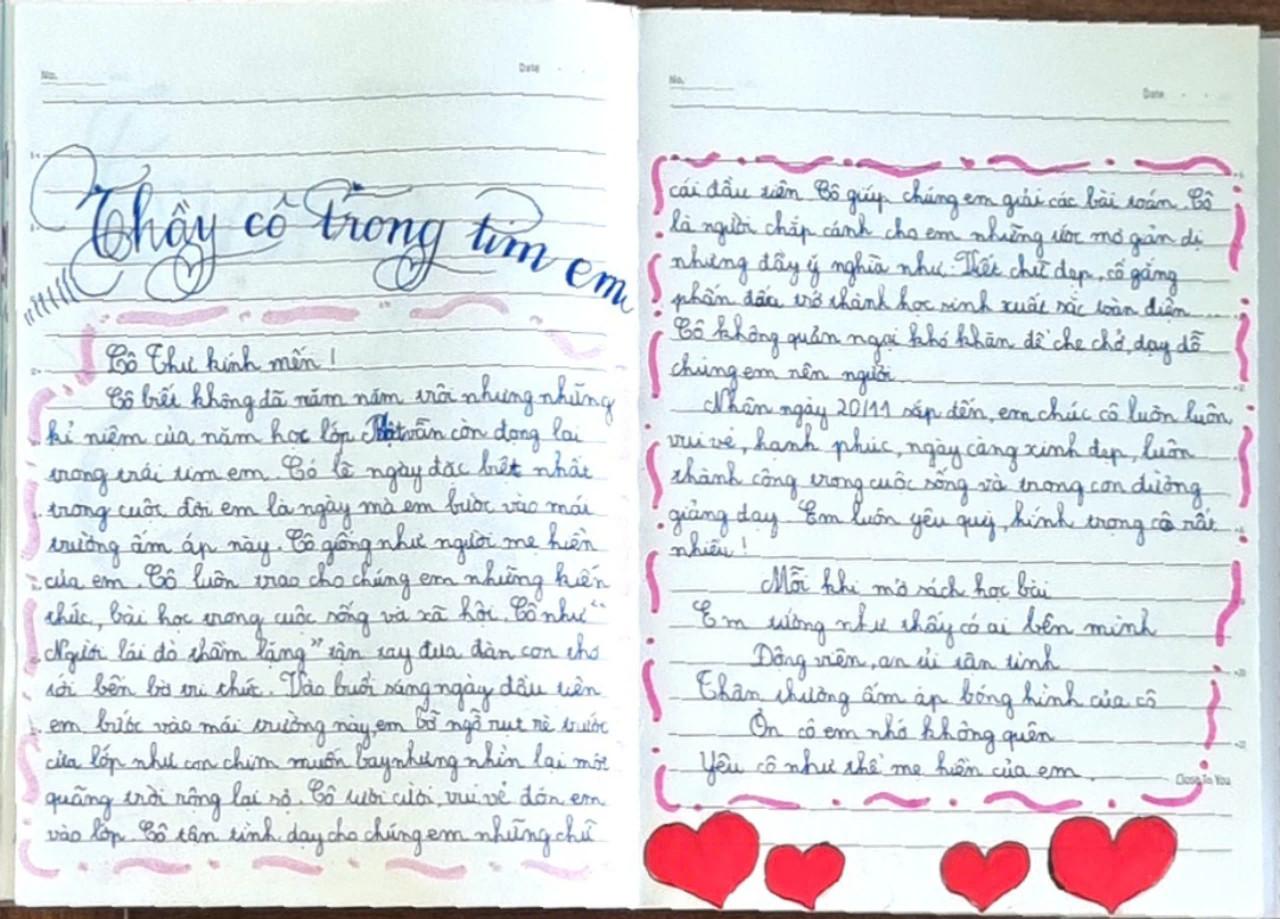 No.
Date
Thầy cô trong tim em
Cô Thư kính mến !
Cô biết không đã năm năm trôi nhưng những
kỉ niệm của năm học lớp Một vẫn còn đọng lại
trong trái tim em. Có lẽ ngày đặc biệt nhất
trong cuộc đời em là ngày mà em bước vào mái
trường ấm áp này. Cô giống như người mẹ hiền
của em. Cô luôn trao cho chúng em những kiến
thức, bài học trong cuộc sống và xã hội. Cô như "
Người lái đò thầm lặng" tận tay đưa đàn con thơ
tới bến bờ tri thức. Vào buổi sáng ngày đầu tiên
em bước vào mái trường này, em bỡ ngỡ rụt rè trước
cửa lớp như con chim muốn bay nhưng nhìn lại một
quãng trời rộng lại sợ. Cô tươi cười, vui vẻ đón em
vào lớp. Cô tận tình dạy cho chúng em những chữ
No.
Date
cái đầu tiên. Cô giúp chúng em giải các bài toán. Cô
là người chắp cánh cho em những ước mơ giản dị
nhưng đầy ý nghĩa như: Viết chữ đẹp, cố gắng
phấn đấu trở thành học sinh xuất sắc toàn diện....
Cô không quản ngại khó khăn để che chở, dạy dỗ
chúng em nên người.
Nhân ngày 20/11 sắp đến, em chúc cô luôn luôn
vui vẻ, hạnh phúc, ngày càng xinh đẹp, luôn
thành công trong cuộc sống và trong con đường
giảng dạy. Em luôn yêu quý, kính trọng cô rất
nhiều !
Mỗi khi mở sách học bài
Em tưởng như thấy có ai bên mình
Động viên, an ủi tận tình
Thân thương ấm áp bóng hình của cô
Ơn cô em nhớ không quên
Yêu cô như thể mẹ hiền của em.
Close To You